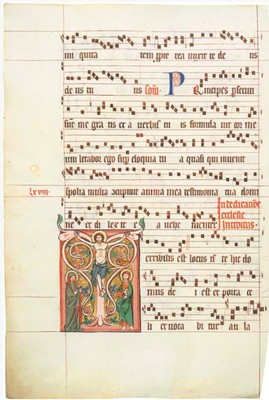 mi quita tem ppte rea unxit te de us
de us tu us Com Principes psecuti
sut me gratis et a uerbis tu is formida uit cor me
um letabor ego sup eloquia tu a quasi qui inuenit
lxviii spolia multa anima mea testimonia tua domi
ne et di lexi te e a uehe menter In dedicatione
ecclesie
Introitus
T erribilis est locus is te hic do
mus de i est et porta ce
li et uoca bi tur au la